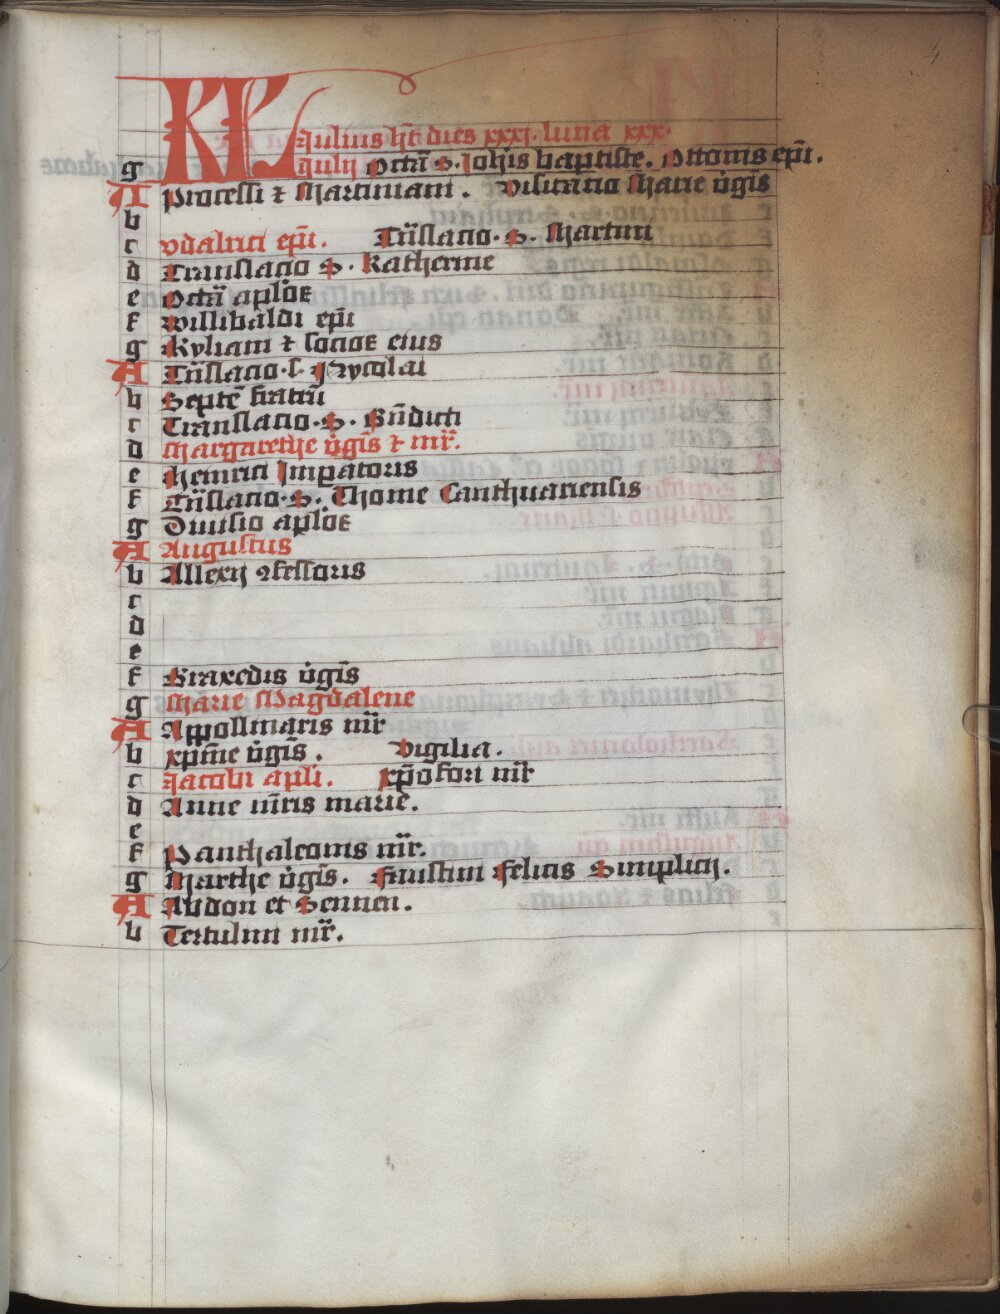 4
KL Julius hꝫ dies xxxj. luna xxx.
g Julij Octā S. Johis baptiste. Ottonis epī.
A Processi ⁊ Martiniani. Visitatio Marie v̄gīs
b
c Udalrici epī. Trāslacio. S. Martini
d Translacio S. Katherine
e Octā aplōꝝ
f Willibaldi epī
g Kyliani ⁊ socioꝝ eius
A Trāslacio. S. Nycolai
b Septē fratrū
c Translacio. S. Bn̄dicti
d Margarethe v̄gīs ⁊ mr̄.
e Heinrici Impatoris
f Trāslacio. S. Thome Canthuariensis
g Diuisio aplōꝝ
A Augustus
b Allexij ꝯfessoris
c
d
e
f Praxedis v̄gīs
g Marie Magdalene
A Appollinaris mr̄
b xp̄ine v̄gīs. Vigilia.
c Jacobi apli. xp̄ofori mr̄
d Anne mr̄is marie.
e
f Panthaleonis mr̄.
g Marthe v̄gīs. Faustini Felicis Simplicij.
A Abdon et Sennen.
b Tertulini mr̄.